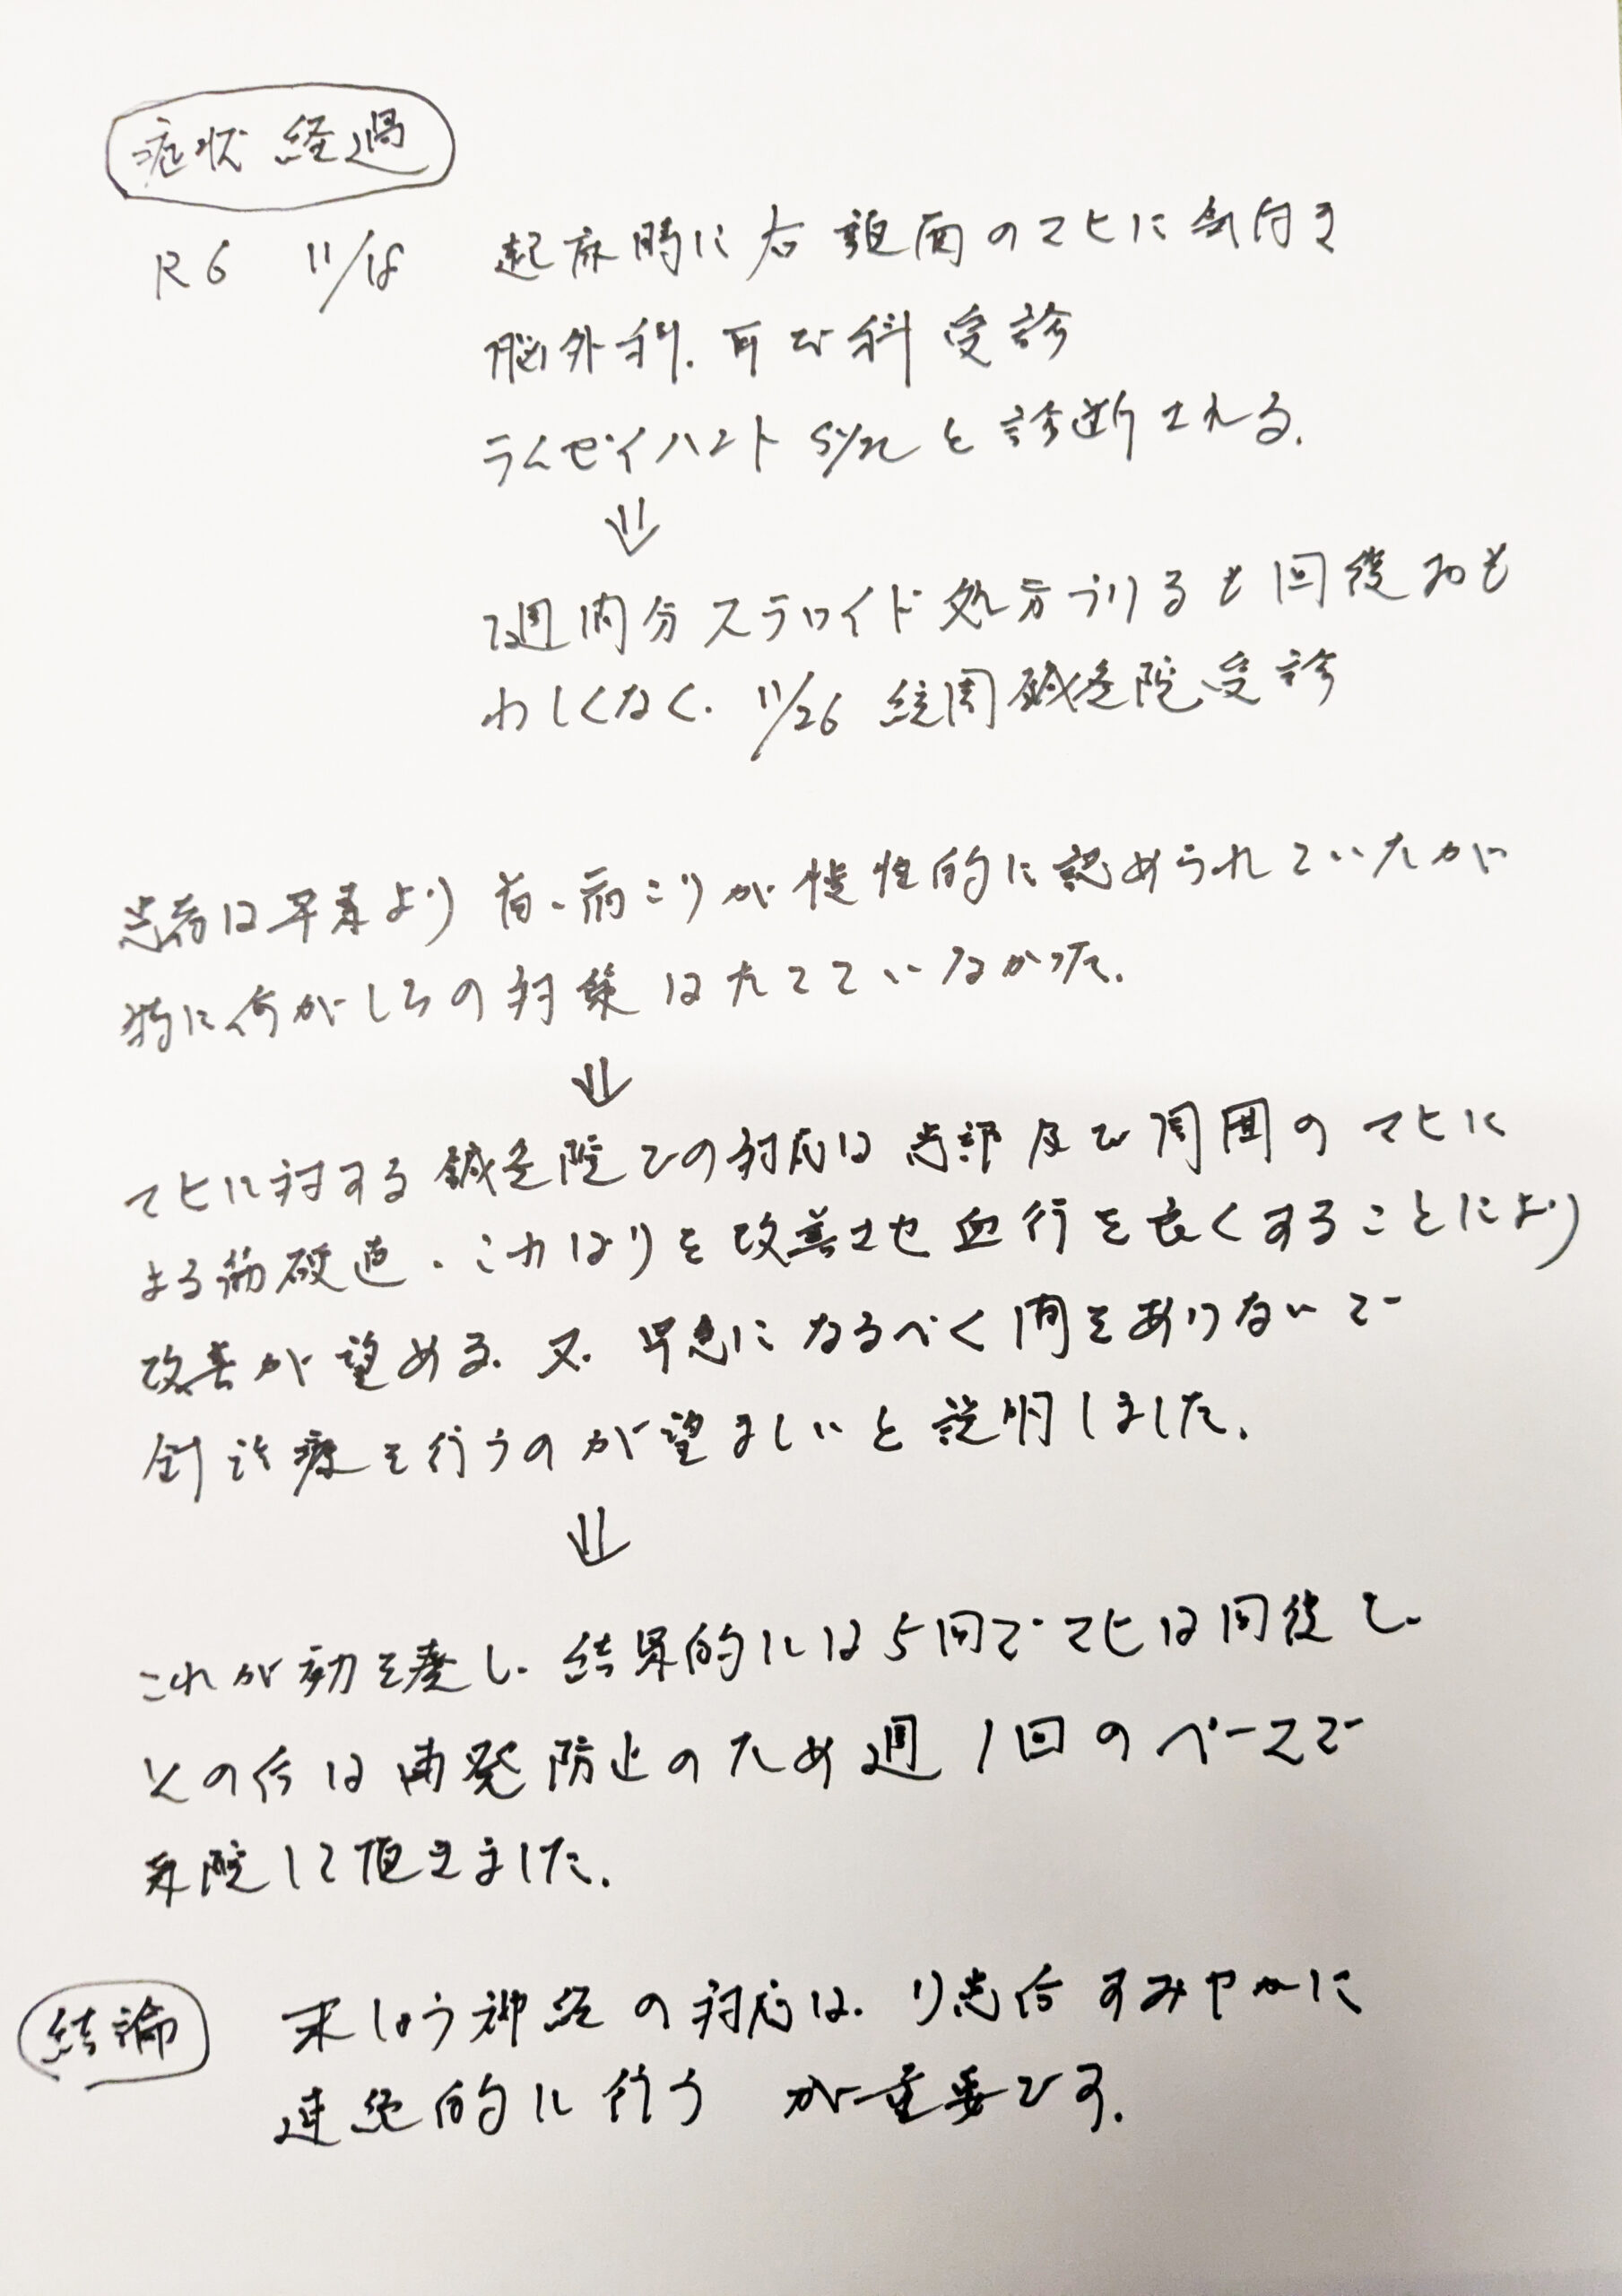 症状経過
R6 11/18 起床時に右顔面のマヒに気付き
脳外科、耳び科受診
ラムゼイハント synと診断される。
⇓
1週間分ステロイド処方うけるも回復おも
わしくなく、11/26 鍼灸院受診
患者は早春より首、肩こりが慢性的に認められていたが
特に何がしろの対策はたてていなかった。
⇓
マヒに対する鍼灸院での対応は患部及び周囲のマヒに
よる筋硬直・こわばりを改善させ血行を良くすることにより
改善が望める。又、早急になるべく間をあけないで
針治療を行うのが望ましいと説明しました。
⇓
これが効を奏し、結果的には5回でマヒは回復し、
その后は再発防止のため週1回のペースで
来院して頂きました。
結論 末しょう神経の対応は、り患后すみやかに
連続的に行う が重要です。